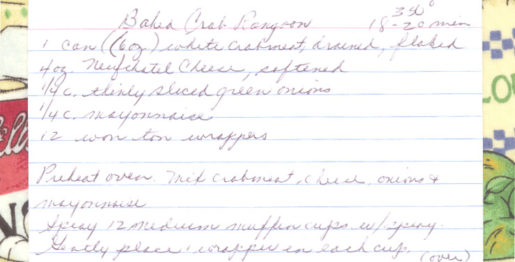 Baked Crab Rangoon
350°
18-20 min
1 can (6oz) white crabmeat, drained, flaked
4 oz. Neufchatel Cheese, softened
1/4 c. thinly sliced green onions
1/4 c. mayonnaise
12 won ton wrappers
Preheat oven. Mix crabmeat, cheese, onions +
mayonnaise
Spray 12 medium muffin cups w/ spray.
Gently place 1 wrapper in each cup.
(over)